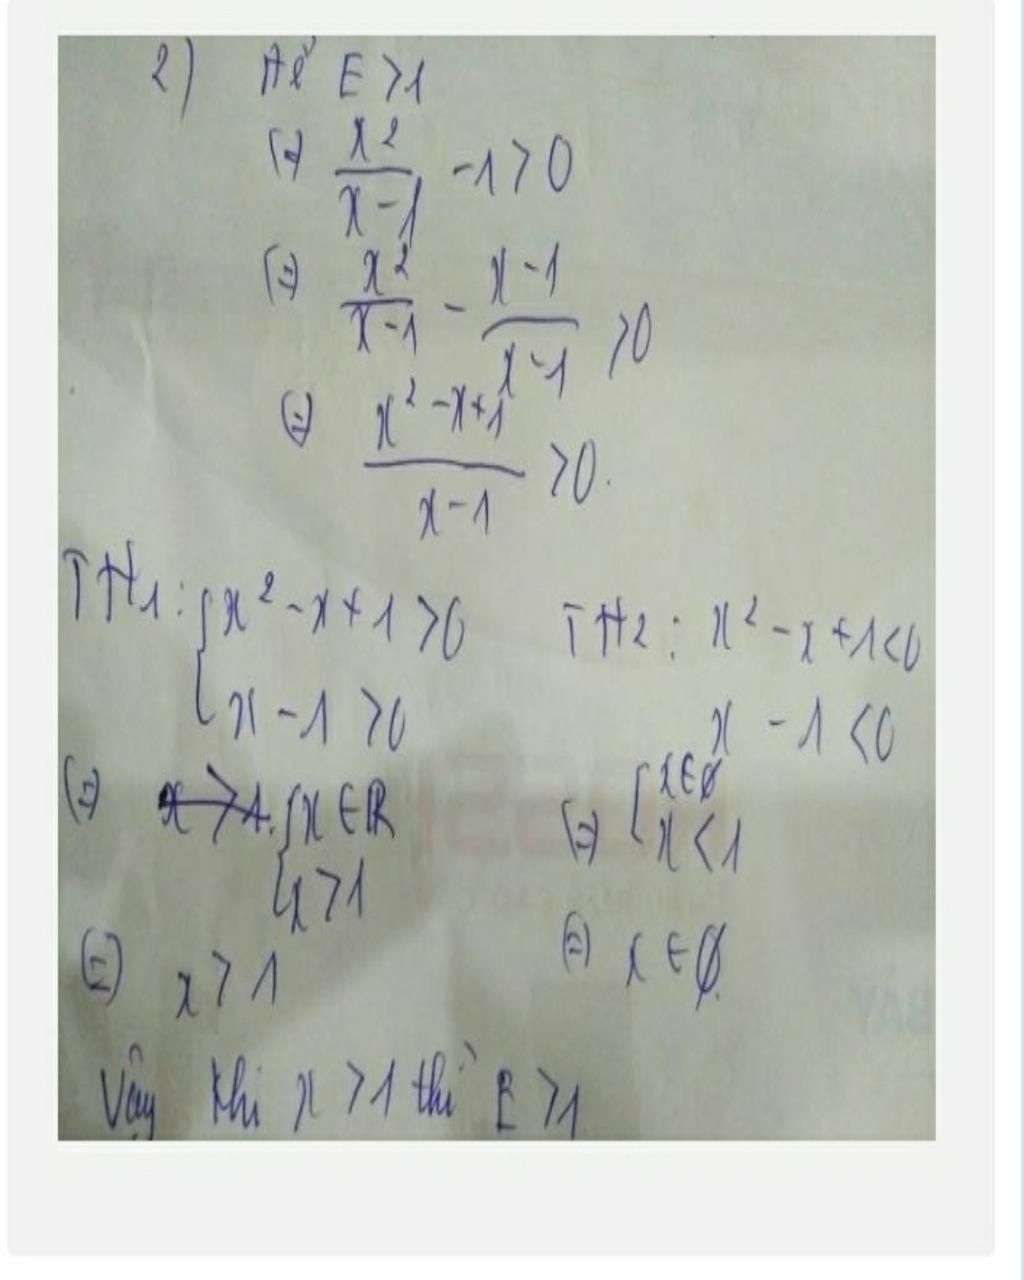 2) Để E > 1
(=) x² / (x - 1) - 1 > 0
(=) x² / (x - 1) - (x - 1) / (x - 1) > 0
(=) (x² - x + 1) / (x - 1) > 0.
TH1: { x² - x + 1 > 0
x - 1 > 0
(=) { x ∈ ℝ
x > 1
(=) x > 1
TH2: x² - x + 1 < 0
x - 1 < 0
(=) { x ∈ ∅
x < 1
(=) x ∈ ∅.
Vậy khi x > 1 thì E > 1